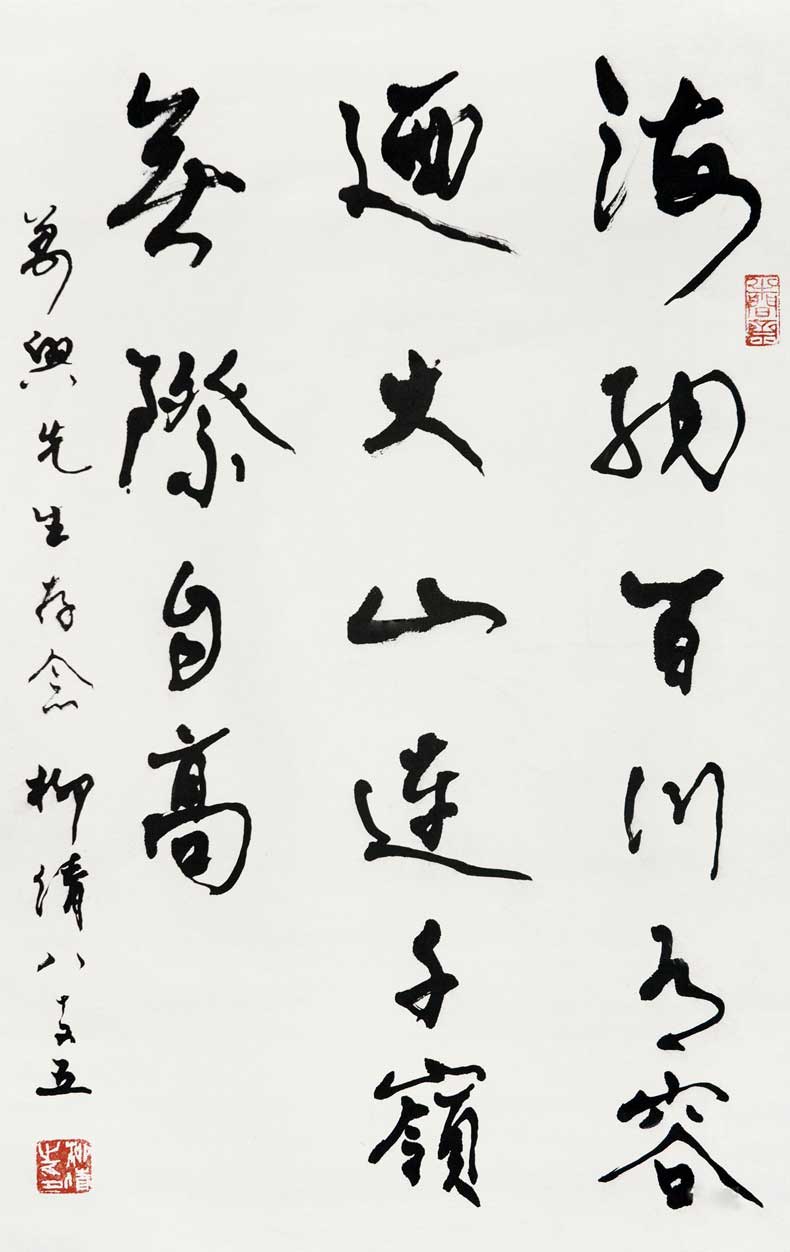 海納百川有容
迺大山連千嶺
無際自高
萬興先生存念柳倩八十又五